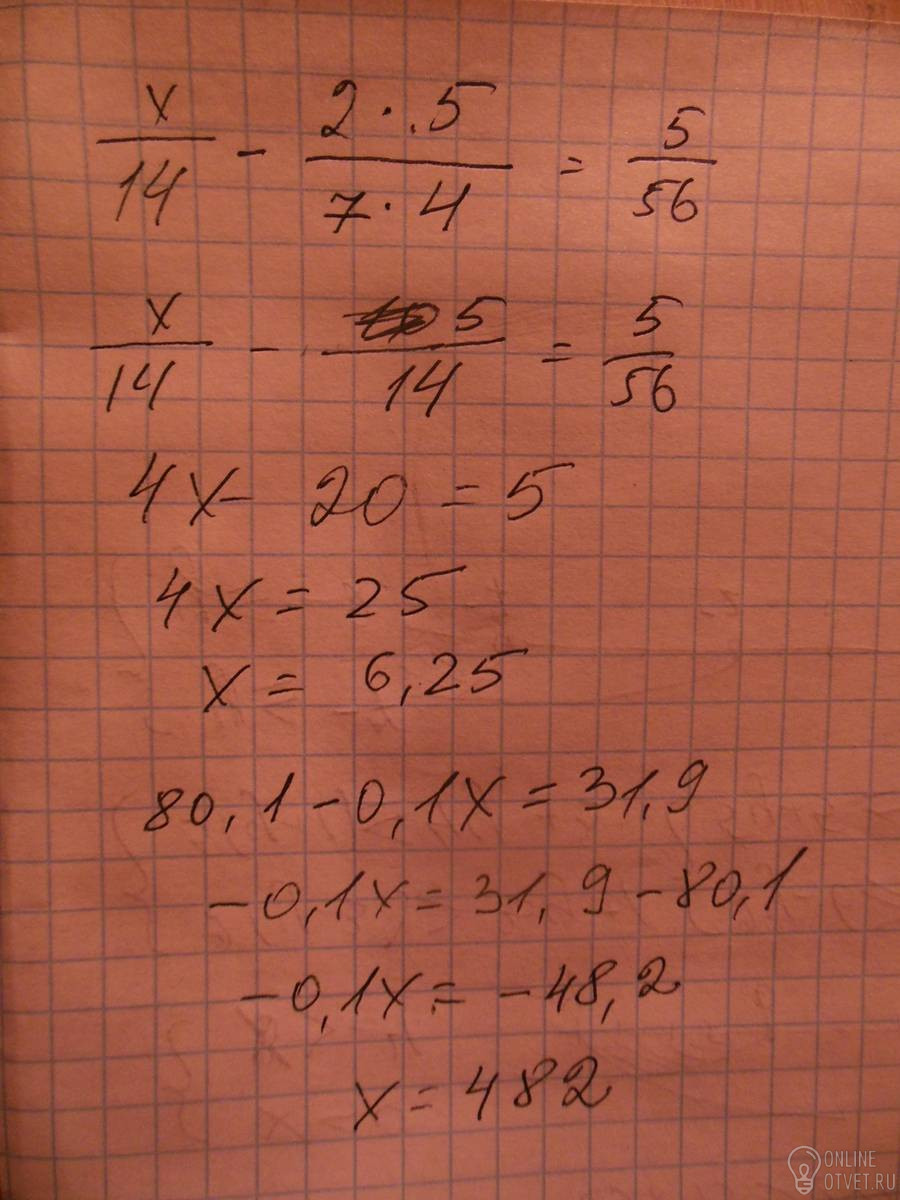 x/14 - 2·.5/7·4 = 5/56
x/14 - 5/14 = 5/56
4x- 20 = 5
4x = 25
x = 6,25
80,1-0,1x=31,9
-0,1x=31,9-80,1
-0,1x=-48,2
x=482
ONLINE
OTVET.RU